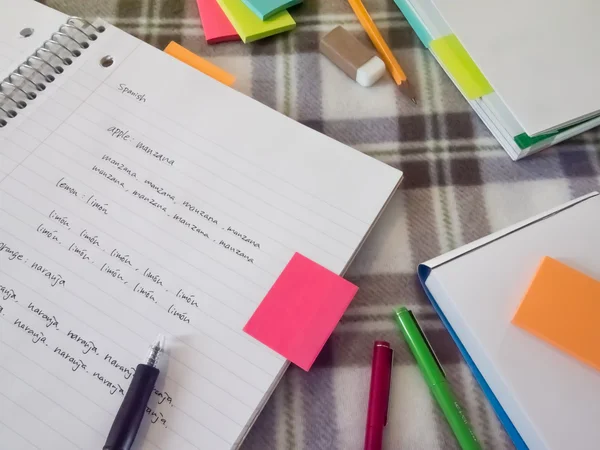 Spanish
apple: manzana
manzana, manzana, manzana, manzana
manzana, manzana, manzana, manzana
lemon: limón
limón, limón, limón, limón, limón
limón, limón, limón, limón, limón
orange: naranja
naranja, naranja, naranja
naranja, naranja, naranja, naranja